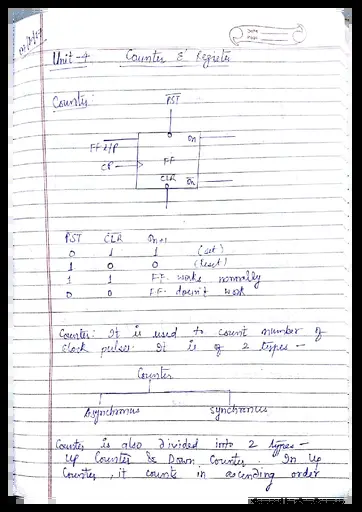 Date
Page
Unit-4 Counter & Register
Counter
PST
FF I/P
Qn
CP
FF
CLR
Qn
PST CLR Qn+1
0 1 1 (set)
1 0 0 (reset)
1 1 FF works normally
0 0 FF doesn't work
Counter: It is used to count number of
clock pulse. It is of 2 types -
Counter
Asynchronus Synchronus
Counter is also divided into 2 types -
Up Counter & Down Counter. In Up
Counter, it counts in ascending order